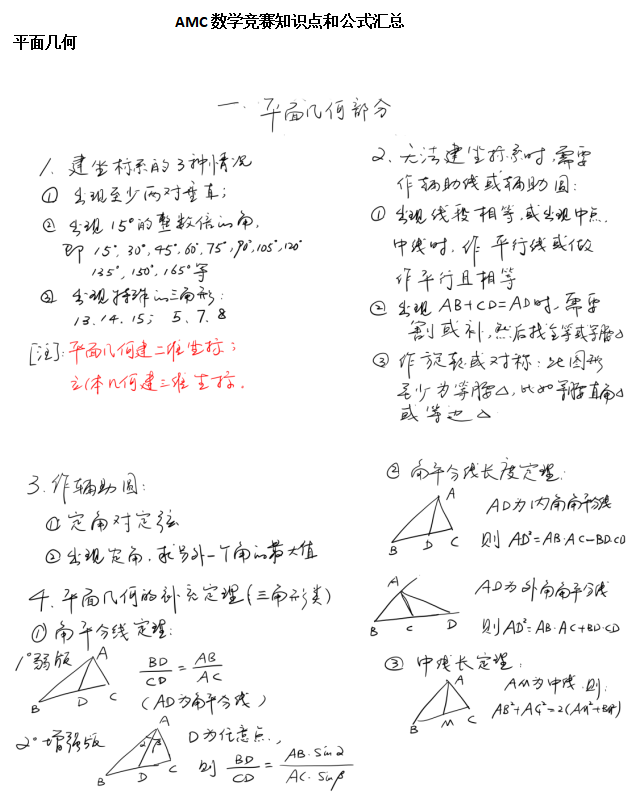 AMC数学竞赛知识点和公式汇总
平面几何
一. 平面几何部分
1. 建坐标系的3种情况
① 出现至少两对垂直;
② 出现15°的整数倍的角,
即 15°, 30°, 45°, 60°, 75°, 90°, 105°, 120°
135°, 150°, 165° 等
③ 出现特殊的三角形:
13. 14. 15; 5. 7. 8
[注]: 平面几何建二维坐标;
立体几何建三维坐标.
2. 无法建坐标系时,需要
作辅助线或辅助圆:
① 出现线段相等,或出现中点.
中线时. 作平行线或做
作平行且相等
② 出现 AB+CD=AD时,需要
割或补,然后找全等或等腰△
③ 作旋转或对称: 此图形
至少为等腰△, 比如等腰直角△
或等边△
3. 作辅助圆:
① 定角对定弦
② 出现定角,求另外一个角的最大值
4. 平面几何的补充定理(三角形类)
① 角平分线定理:
1° 弱版
A
B D C
BD/CD = AB/AC
(AD为角平分线)
2° 增强版
A
α β
B D C
D为任意点,
则 BD/CD = AB·sinα/AC·sinβ
② 角平分线长度定理:
A
B D C
AD为内角角平分线
则 AD²=AB·AC-BD·CD
A
B C D
AD为外角角平分线
则AD²=AB·AC+BD·CD
③ 中线长定理:
A
B M C
AM为中线.则:
AB²+AC²=2(AM²+BM²)